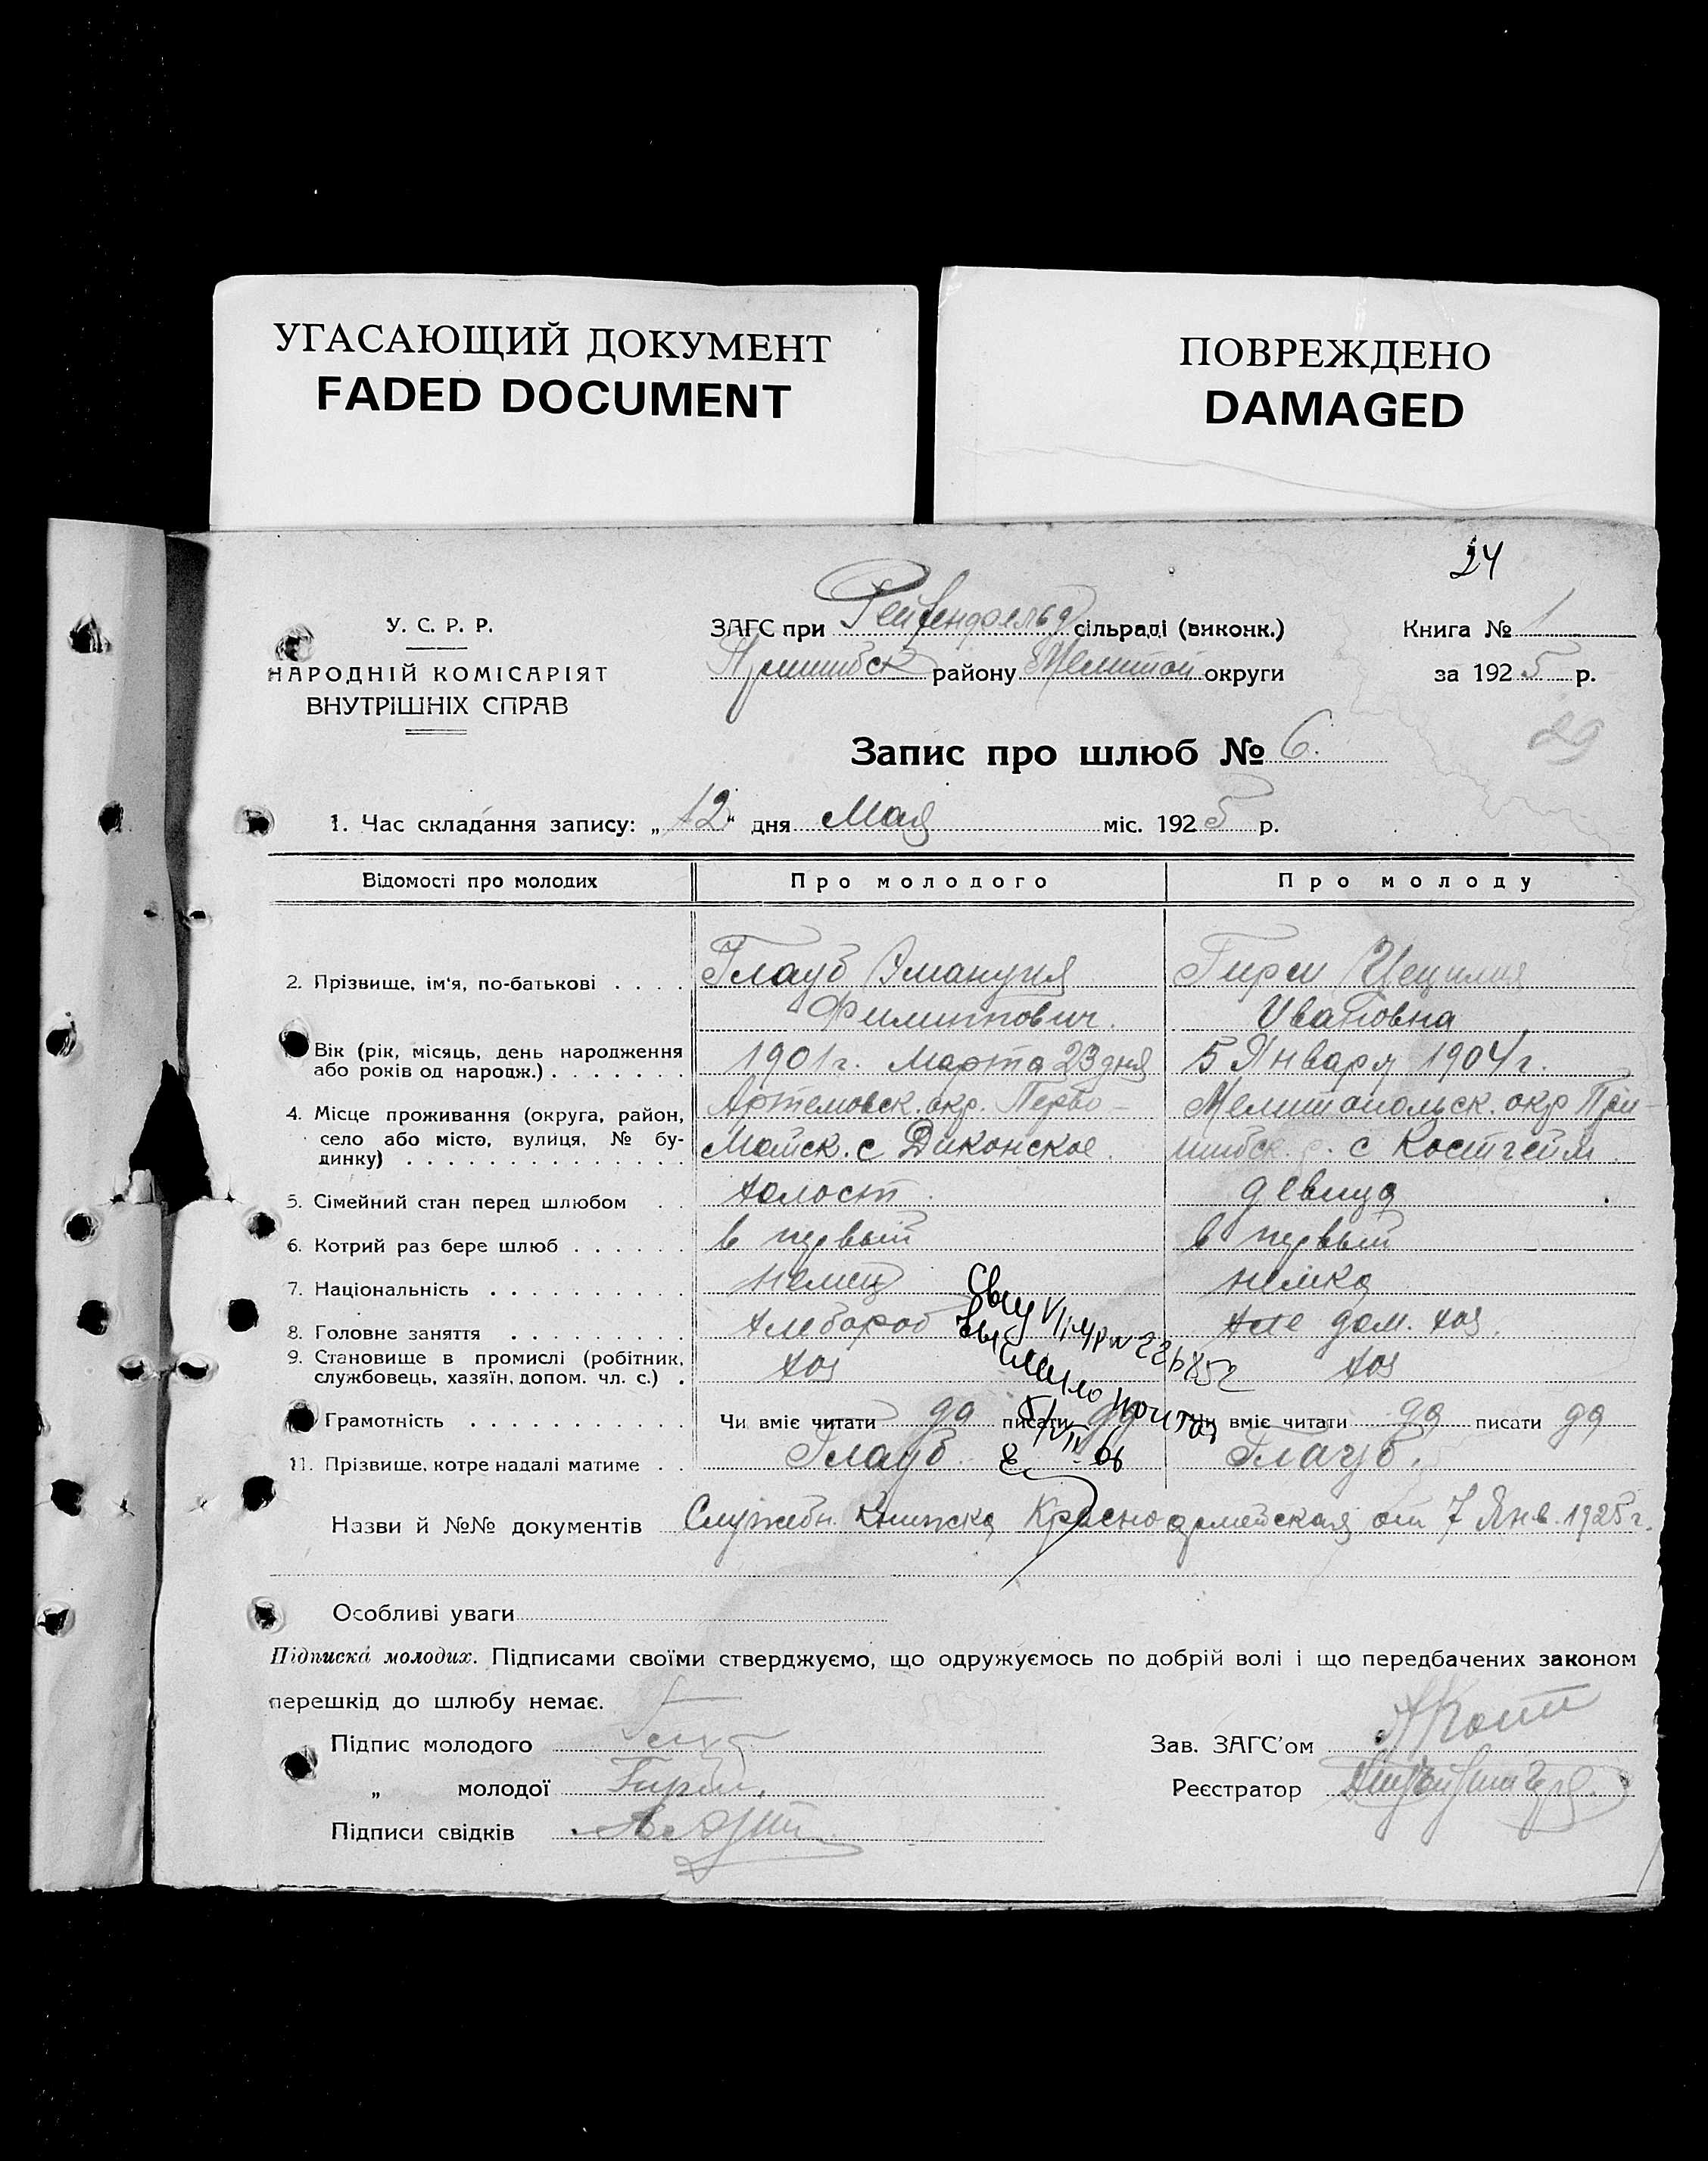 УГАСАЮЩИЙ ДОКУМЕНТ
FADED DOCUMENT
ПОВРЕЖДЕНО
DAMAGED
24
У. С. Р. Р.
НАРОДНІЙ КОМІСАРІЯТ
ВНУТРІШНІХ СПРАВ
ЗАГС при Рейхенфельд сільраді (виконк.)
Пришибск району Мелитоп округи
Книга № 1
за 1925 р.
29
Запис про шлюб № 6.
1. Час складання запису: „12“ дня Мая міс. 1925 р.
Відомості про молодих Про молодого Про молоду
2. Прізвище, ім'я, по-батькові . . . . Глауб Эмануил Гирш Цецилия
Филиппович. Ивановна
Вік (рік, місяць, день народження
або років од народж.) . . . . . . . 1901 г. Марта 23 дня 5 Января 1904 г.
4. Місце проживання (округа, район, Артемовск. окр. Перво- Мелитопольск. окр При-
село або місто, вулиця, № бу-
динку) . . . . . . . . . . . . . . Майск. с Диконское. шибск. р. с Костгейм.
5. Сімейний стан перед шлюбом . . холост. девица
6. Котрий раз бере шлюб . . . . . . в первый в первый
7. Національність . . . . . . . . . . немец немка
8. Головне заняття . . . . . . . . . хлебороб дом. хоз.
9. Становище в промислі (робітник,
службовець, хазяїн, допом. чл. с.) . хоз хоз
Грамотність . . . . . . . . . . . Чи вміє читати да писати да Чи вміє читати да писати да
11. Прізвище, котре надалі матиме . . Глауб. Глауб.
Назви й №№ документів Служебн. Книжка Красноармейская от 7 Янв. 1925 г.
Особливі уваги
Підписка молодих. Підписами своїми стверджуємо, що одружуємось по добрій волі і що передбачених законом
перешкід до шлюбу немає.
Підпис молодого Глауб
„ молодої Гирш.
Підписи свідків
Зав. ЗАГС'ом
Реєстратор